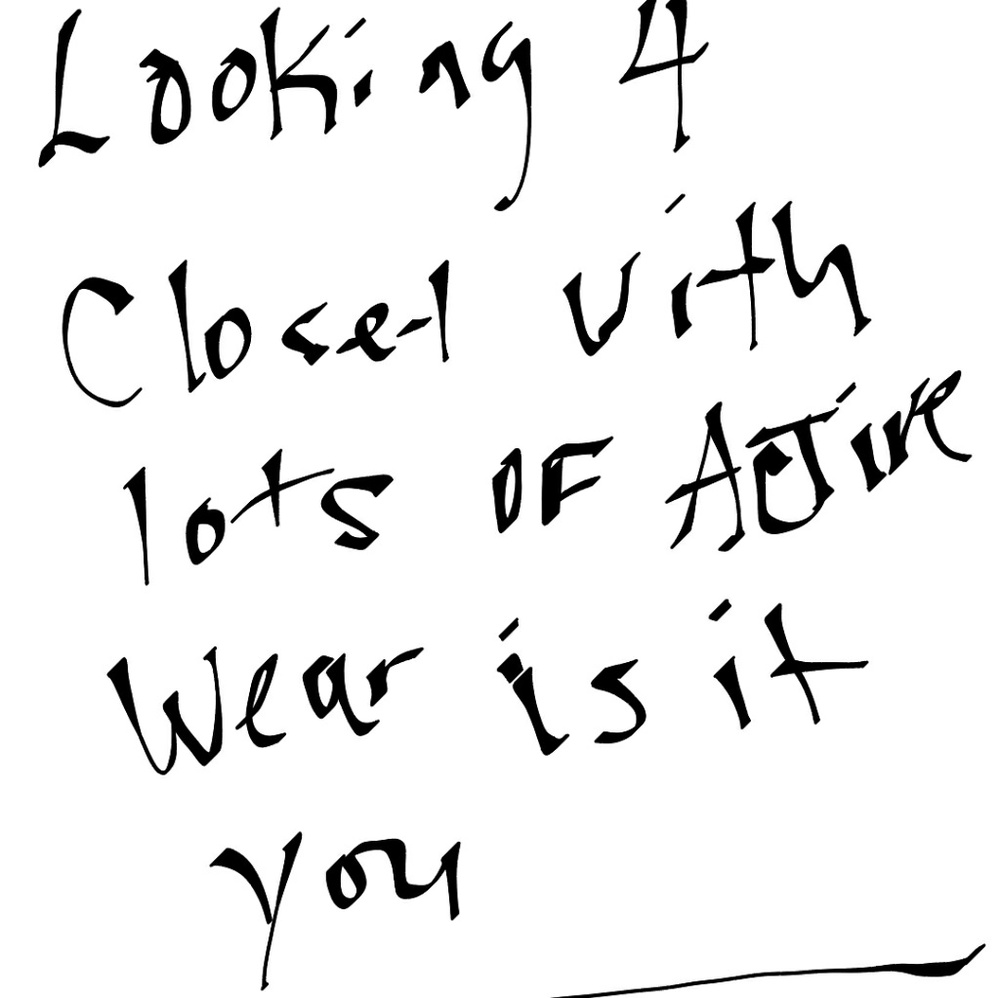 Looking 4
Closet with
lots OF Active
Wear is it
you